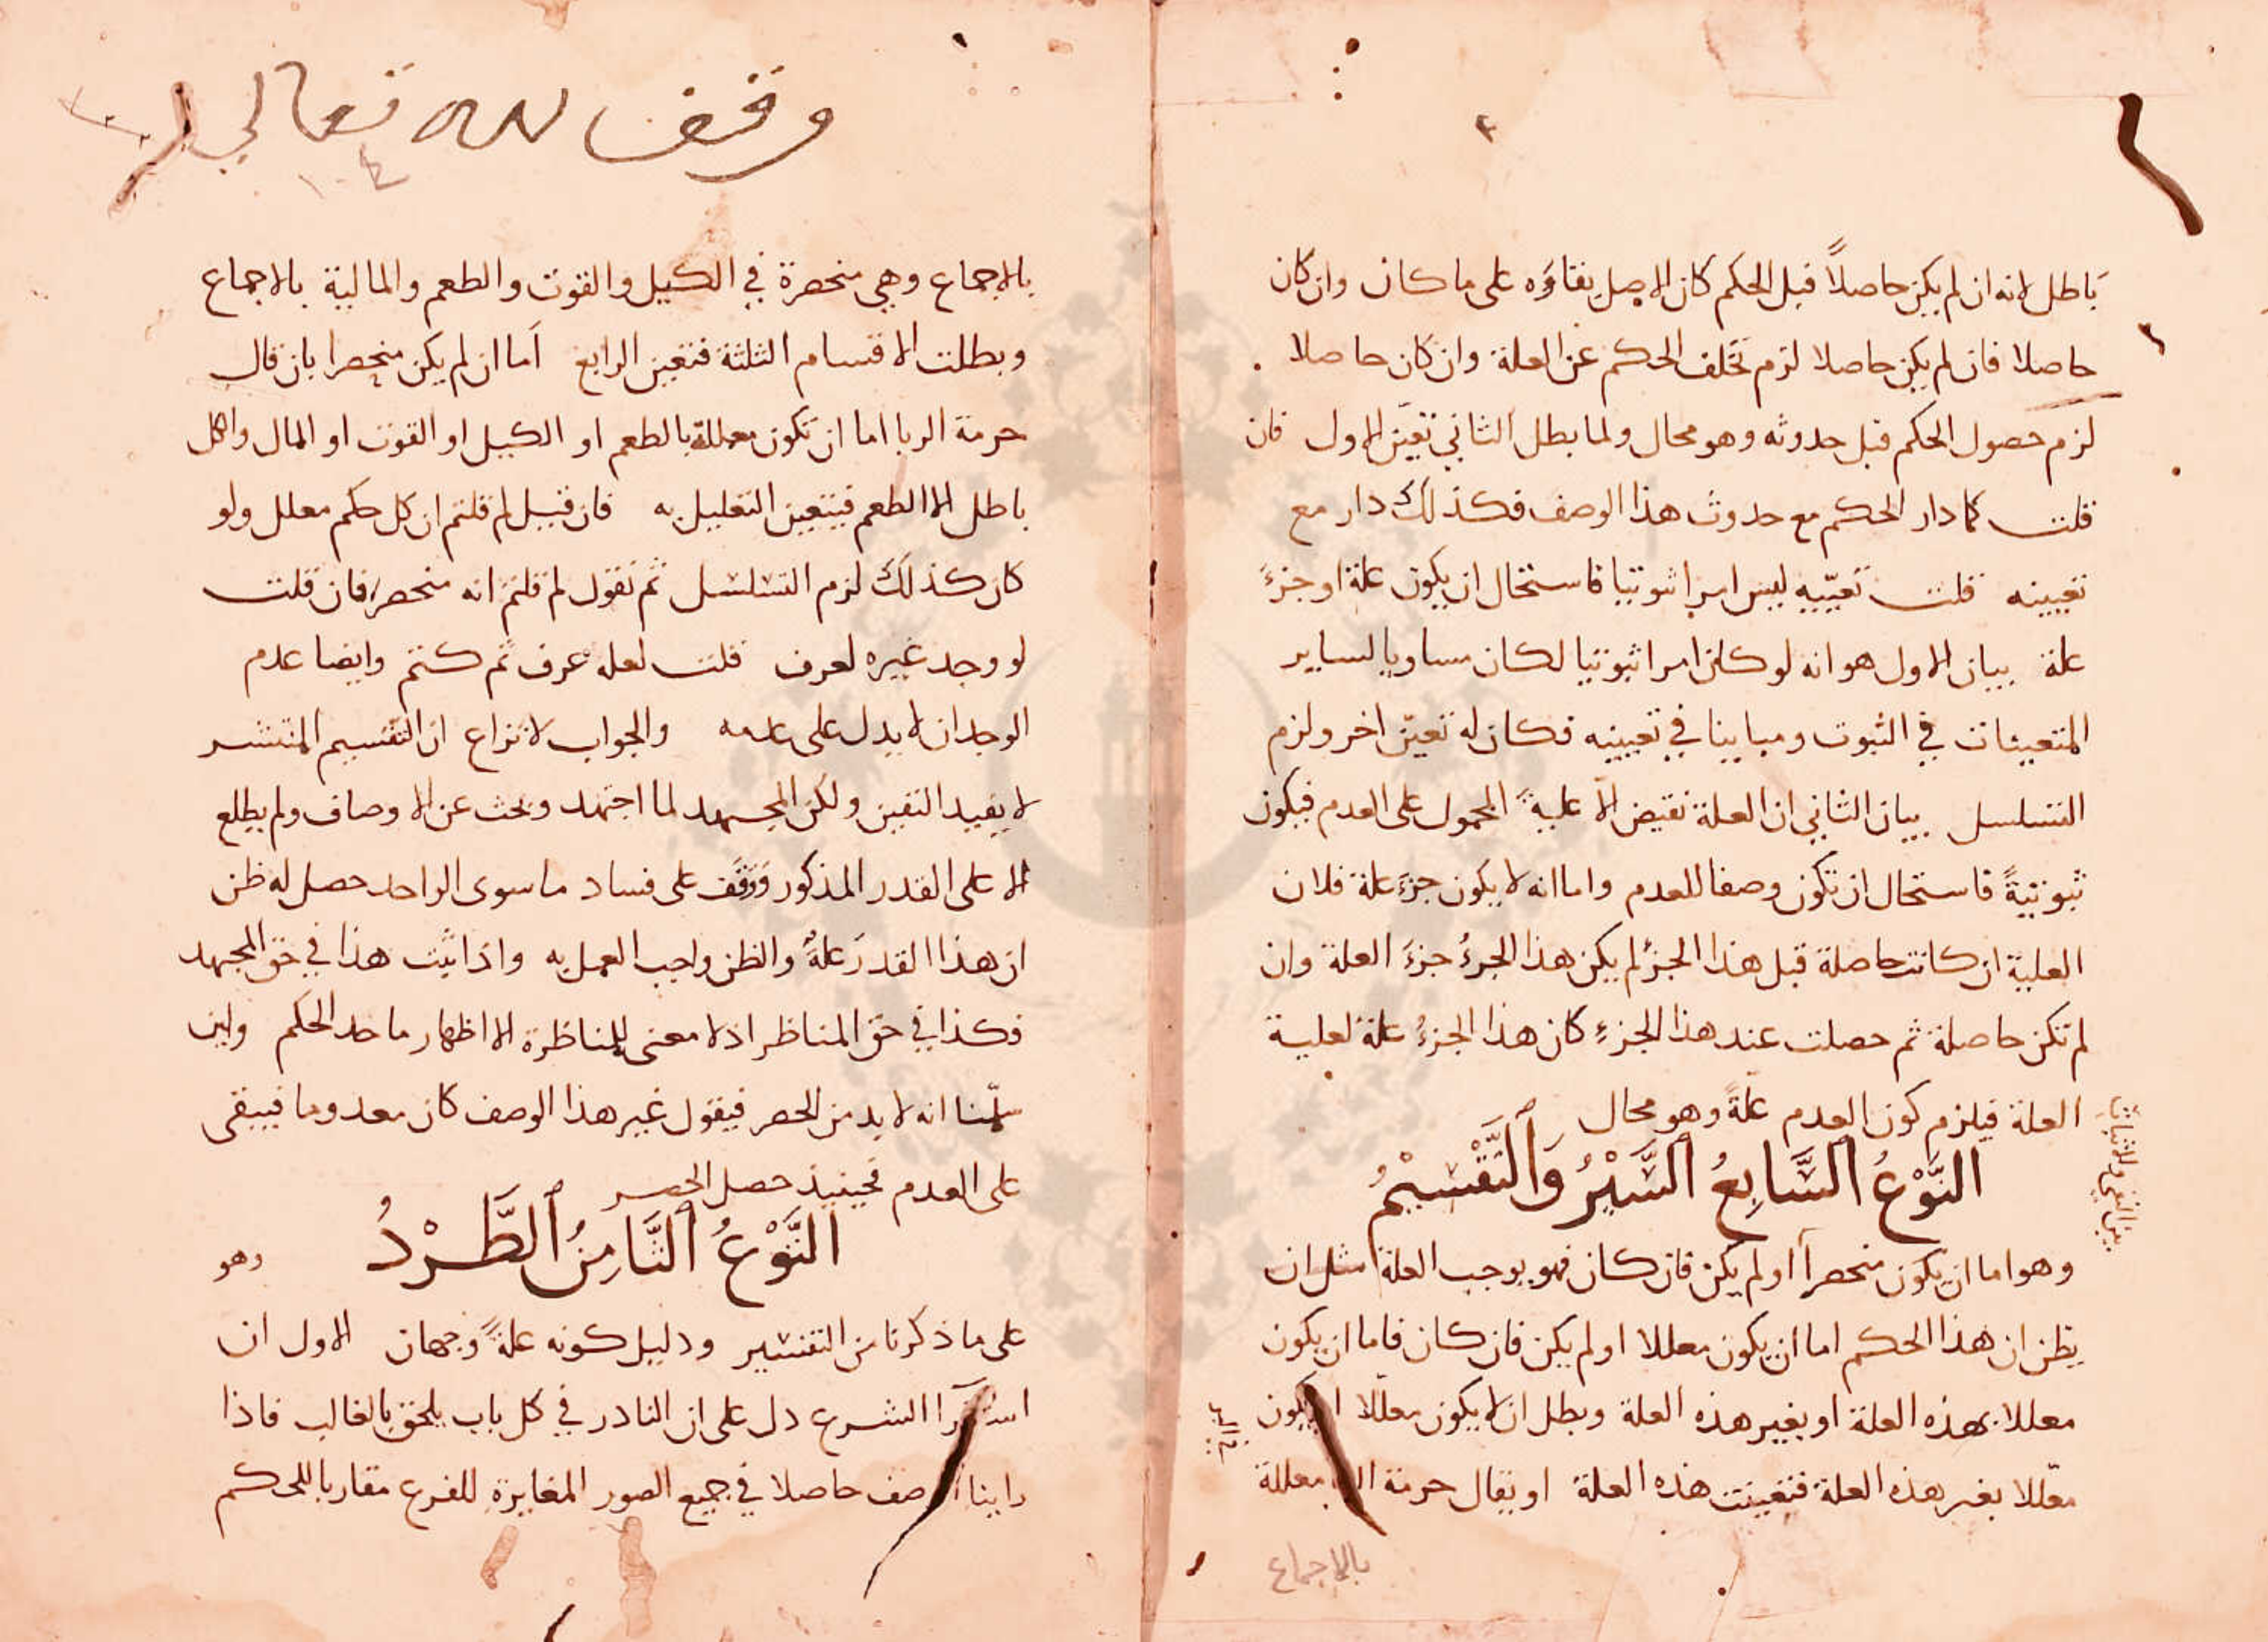 باطل لانه ان لم يكن حاصلاً قبل الحكم كان الاصل بقاؤه على ما كان وان كان
حاصلا فان لم يكن حاصلا لزم تخلف الحكم عن العلة وان كان حاصلا
لزم حصول الحكم قبل حدوثه وهو محال ولما بطل الثاني تعيّن الاول فان
قلت كما دار الحكم مع حدوث هذا الوصف فكذلك دار مع
تعيينه قلت تعيّنه ليس امرا ثبوتيا فاستحال ان يكون علة او جزءَ
علة بيان الاول هو انه لو كان امرا ثبوتيا لكان مساويا لساير
المتعينات في الثبوت ومباينا في تعيينه فكان له تعيّن اخر ولزم
التسلسل بيان الثاني ان العلة نقيض الا علية المحمول على العدم فيكون
ثبوتيةً فاستحال ان تكون وصفا للعدم واما انه لا يكون جزءَ علة فلان
العلية ان كانت حاصلة قبل هذا الجزء لم يكن هذا الجزءُ جزءَ العلة وان
لم تكن حاصلة ثم حصلت عند هذا الجزءِ كان هذا الجزءُ علةً لعلية
العلة فيلزم كون العدم علةً وهو محال
النَّوْعُ السَّابِعُ السَّبْرُ وَالتَّقْسِيْمُ
بين النفي والاثبات
وهو اما ان يكون منحصرا او لم يكن فان كان فهو يوجب العلة مثل ان
يظن ان هذا الحكم اما ان يكون معللا او لم يكن فان كان فاما ان يكون
معللا بهذه العلة او بغير هذه العلة وبطل ان لا يكون معللا او يكون
معللا بغير هذه العلة فتعينت هذه العلة او يقال حرمة معللة
بالاجماع
وقف لله تعالى
بالاجماع وهي منحصرة في الكيل والقوت والطعم والمالية بالاجماع
وبطلت الاقسام الثلثة فتعين الرابع اَما ان لم يكن منحصرا بان قال
حرمة الربا اما ان تكون معللة بالطعم او الكيل او القوت او المال والكل
باطل الا الطعم فيتعين التعليل به فان قيل لم قلتم ان كل حكم معلل ولو
كان كذلك لزم التسلسل ثم نقول لم قلتم انه منحصر فان قلت
لو وجد غيره لعرف قلت لعله عرف ثم كتم وايضا عدم
الوجدان لا يدل على عدمه والجواب لا نزاع ان التقسيم المنتشر
لا يفيد اليقين ولكن المجتهد لما اجتهد وبحث عن الاوصاف ولم يطلع
الا على القدر المذكور ووقف على فساد ما سوى الواحد حصل له ظن
ان هذا القدر علةٌ والظن واجب العمل به واذا ثبت هذا في حق المجتهد
فكذا في حق المناظر اذ لا معنى للمناظرة الا اظهار ماخد الحكم ولين
سلّمنا انه لا بد من الحصر فيقول غير هذا الوصف كان معدوما فيبقى
على العدم فحينيذ حصل الحصر
النَّوْعُ الثَّامِنُ الطَّرْدُ وهو
على ما ذكرنا من التفسير ودليل كونه علةً وجهان الاول ان
استقرا الشرع دل على ان النادر في كل باب يلحق بالغالب فاذا
راينا الوصف حاصلا في جميع الصور المغايرة للفرع مقاربا للحكم